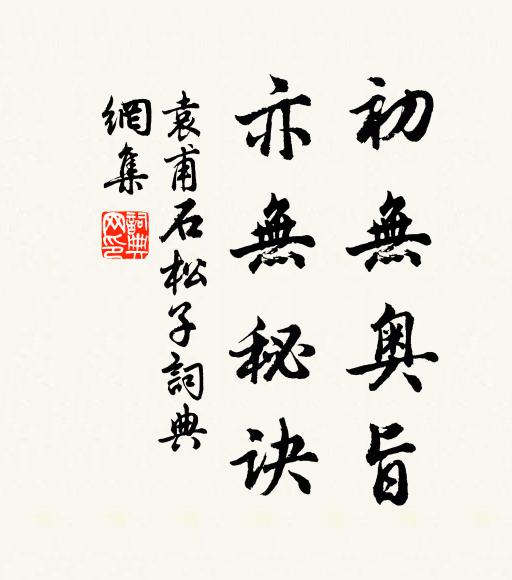 初無奥旨
亦無秘诀
袁甫石松子詞典
網集
詞典
网印